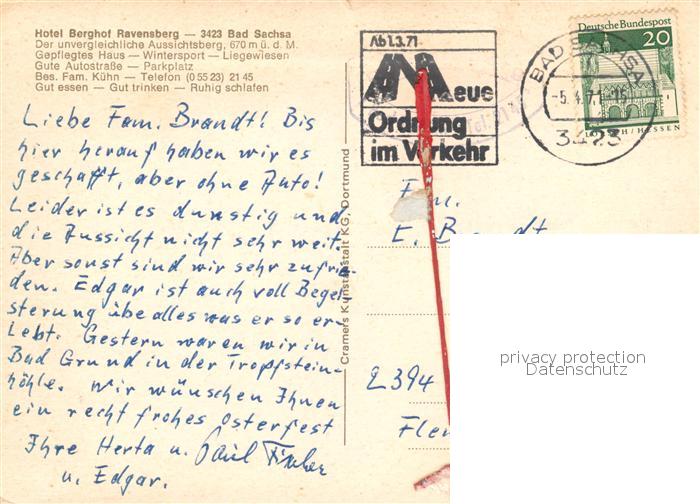 Hotel Berghof Ravensberg — 3423 Bad Sachsa
Der unvergleichliche Aussichtsberg, 670 m ü. d. M.
Gepflegtes Haus — Wintersport — Liegewiesen
Gute Autostraße — Parkplatz
Bes. Fam. Kühn — Telefon (0 55 23) 21 45
Gut essen — Gut trinken — Ruhig schlafen
Liebe Fam. Brandt! Bis
hier herauf haben wir es
geschafft, aber ohne Auto!
Leider ist es dunstig und
die Aussicht nicht sehr weit.
Aber sonst sind wir sehr zufrie-
den. Edgar ist auch voll Begei-
sterung über alles was er so er-
lebt. Gestern waren wir in
Bad Grund in der Tropfstein-
höhle. Wir wünschen Ihnen
ein recht frohes Osterfest
Ihre Herta u. Paul
u. Edgar.
Cramers Kunstanstalt KG, Dortmund
Ab 1.3.71
Neue
Ordnung
im Verkehr
BAD SACHSA
-5.4.71-16
3423
Deutsche Bundespost
20
LORSCH/HESSEN
Fam.
E. Brandt
2394
privacy protection
Datenschutz